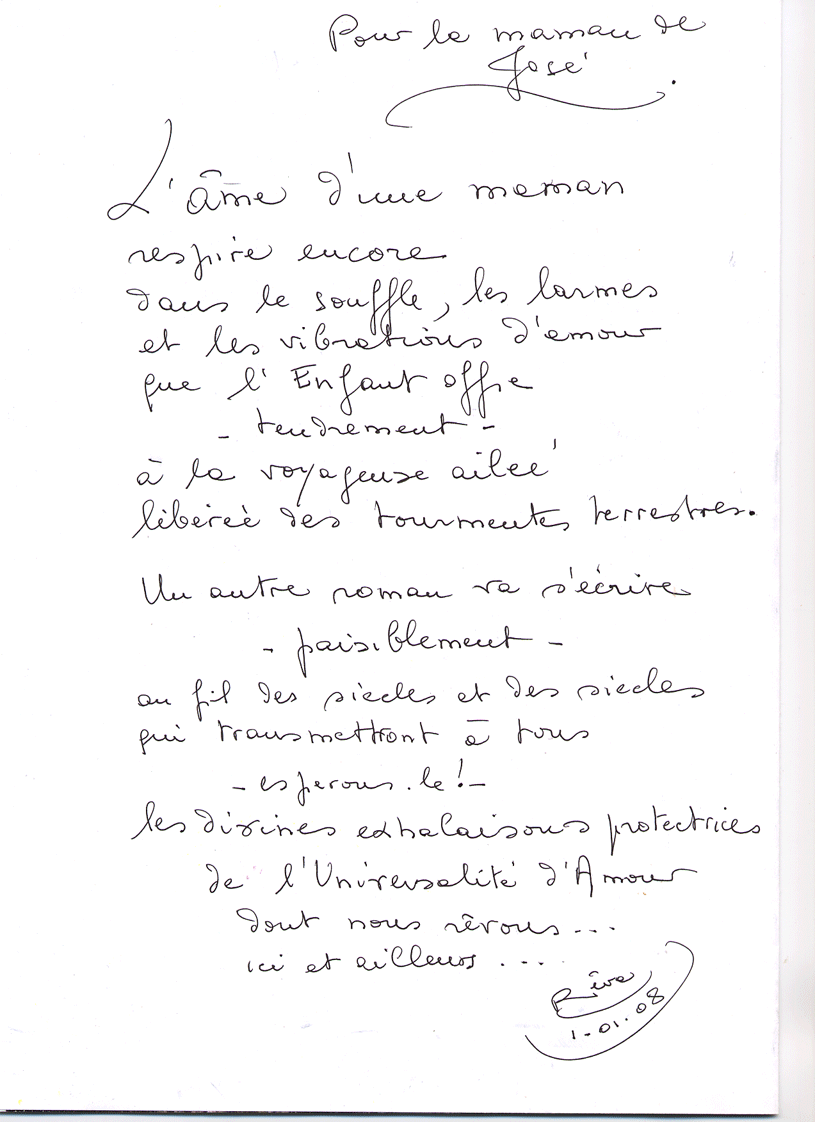 Pour la maman de
José
L'âme d'une maman
respire encore
dans le souffle, les larmes
et les vibrations d'amour
que l'Enfant offre
- tendrement -
à la voyageuse ailée
libérée des tourmentes terrestres.
Un autre roman va s'écrire
- paisiblement -
au fil des siècles et des siècles
qui transmettront à tous
- espérons-le ! -
les divines exhalaisons protectrices
de l'Universalité d'Amour
dont nous rêvons...
ici et ailleurs ....
Rêva
1-01-08